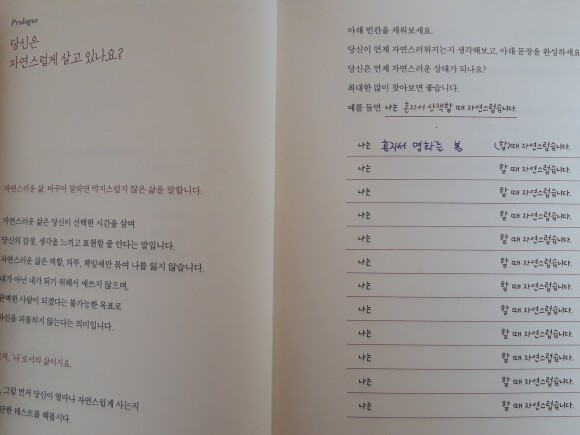 Prologue
당신은
자연스럽게 살고 있나요?
자연스러운 삶, 바꾸어 말하면 억지스럽지 않은 삶을 말합니다.
자연스러운 삶은 당신이 선택한 시간을 살며
당신의 감정, 생각을 느끼고 표현할 줄 안다는 말입니다.
자연스러운 삶은 역할, 의무, 책임에만 묶여 나를 잃지 않습니다.
내가 아닌 내가 되기 위해서 애쓰지 않으며,
완벽한 사람이 되겠다는 불가능한 목표로
자신을 괴롭히지 않는다는 의미입니다.
'나'로서의 삶이지요.
그럼 먼저 당신이 얼마나 자연스럽게 사는지
테스트를 해봅시다.
아래 빈칸을 채워보세요.
당신이 언제 자연스러워지는지 생각해보고, 아래 문장을 완성하세요
당신은 언제 자연스러운 상태가 되나요?
최대한 많이 찾아보면 좋습니다.
예를 들면 나는 혼자서 산책할 때 자연스럽습니다.
나는 혼자서 멍하는 볼 (할)때 자연스럽습니다.
나는 할 때 자연스럽습니다.
나는 할 때 자연스럽습니다.
나는 할 때 자연스럽습니다.
나는 할 때 자연스럽습니다.
나는 할 때 자연스럽습니다.
나는 할 때 자연스럽습니다.
나는 할 때 자연스럽습니다.
나는 할 때 자연스럽습니다.
나는 할 때 자연스럽습니다.
나는 할 때 자연스럽습니다.
나는 할 때 자연스럽습니다.